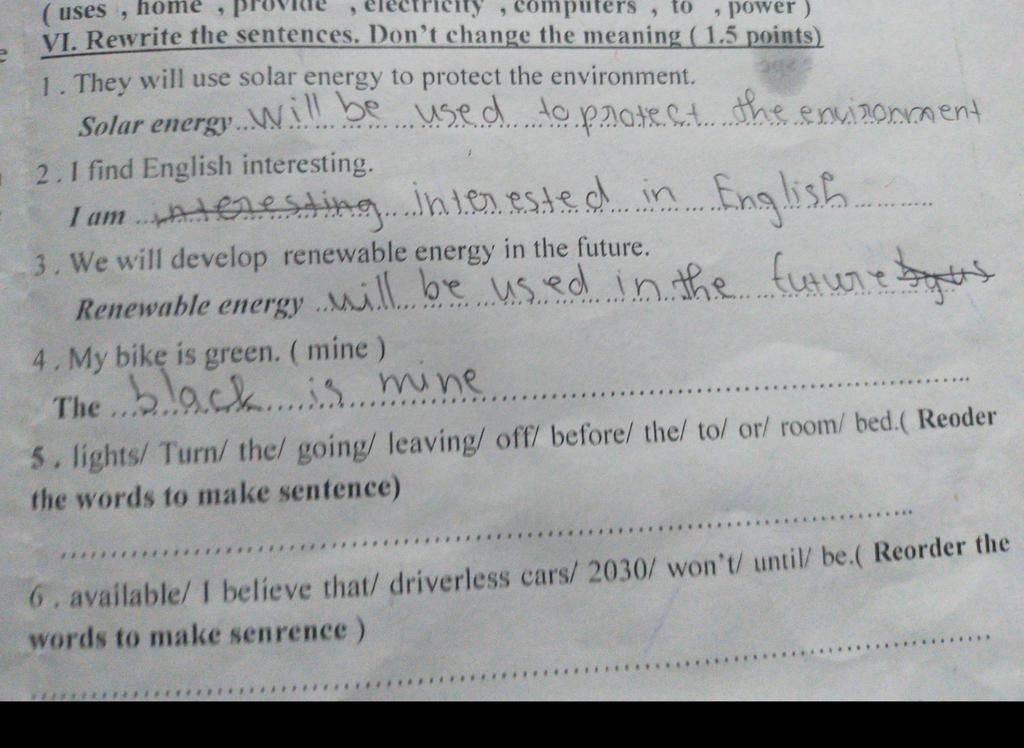 ( uses , home , provide , electricity , computers , to , power )
VI. Rewrite the sentences. Don't change the meaning ( 1.5 points)
1 . They will use solar energy to protect the environment.
Solar energy will be used to protect the environment
2 . I find English interesting.
I am interesting interested in English
3 . We will develop renewable energy in the future.
Renewable energy will be used in the future
4 . My bike is green. ( mine )
The black is mine
5 . lights/ Turn/ the/ going/ leaving/ off/ before/ the/ to/ or/ room/ bed.( Reoder
the words to make sentence)
6 . available/ I believe that/ driverless cars/ 2030/ won't/ until/ be.( Reorder the
words to make senrence )